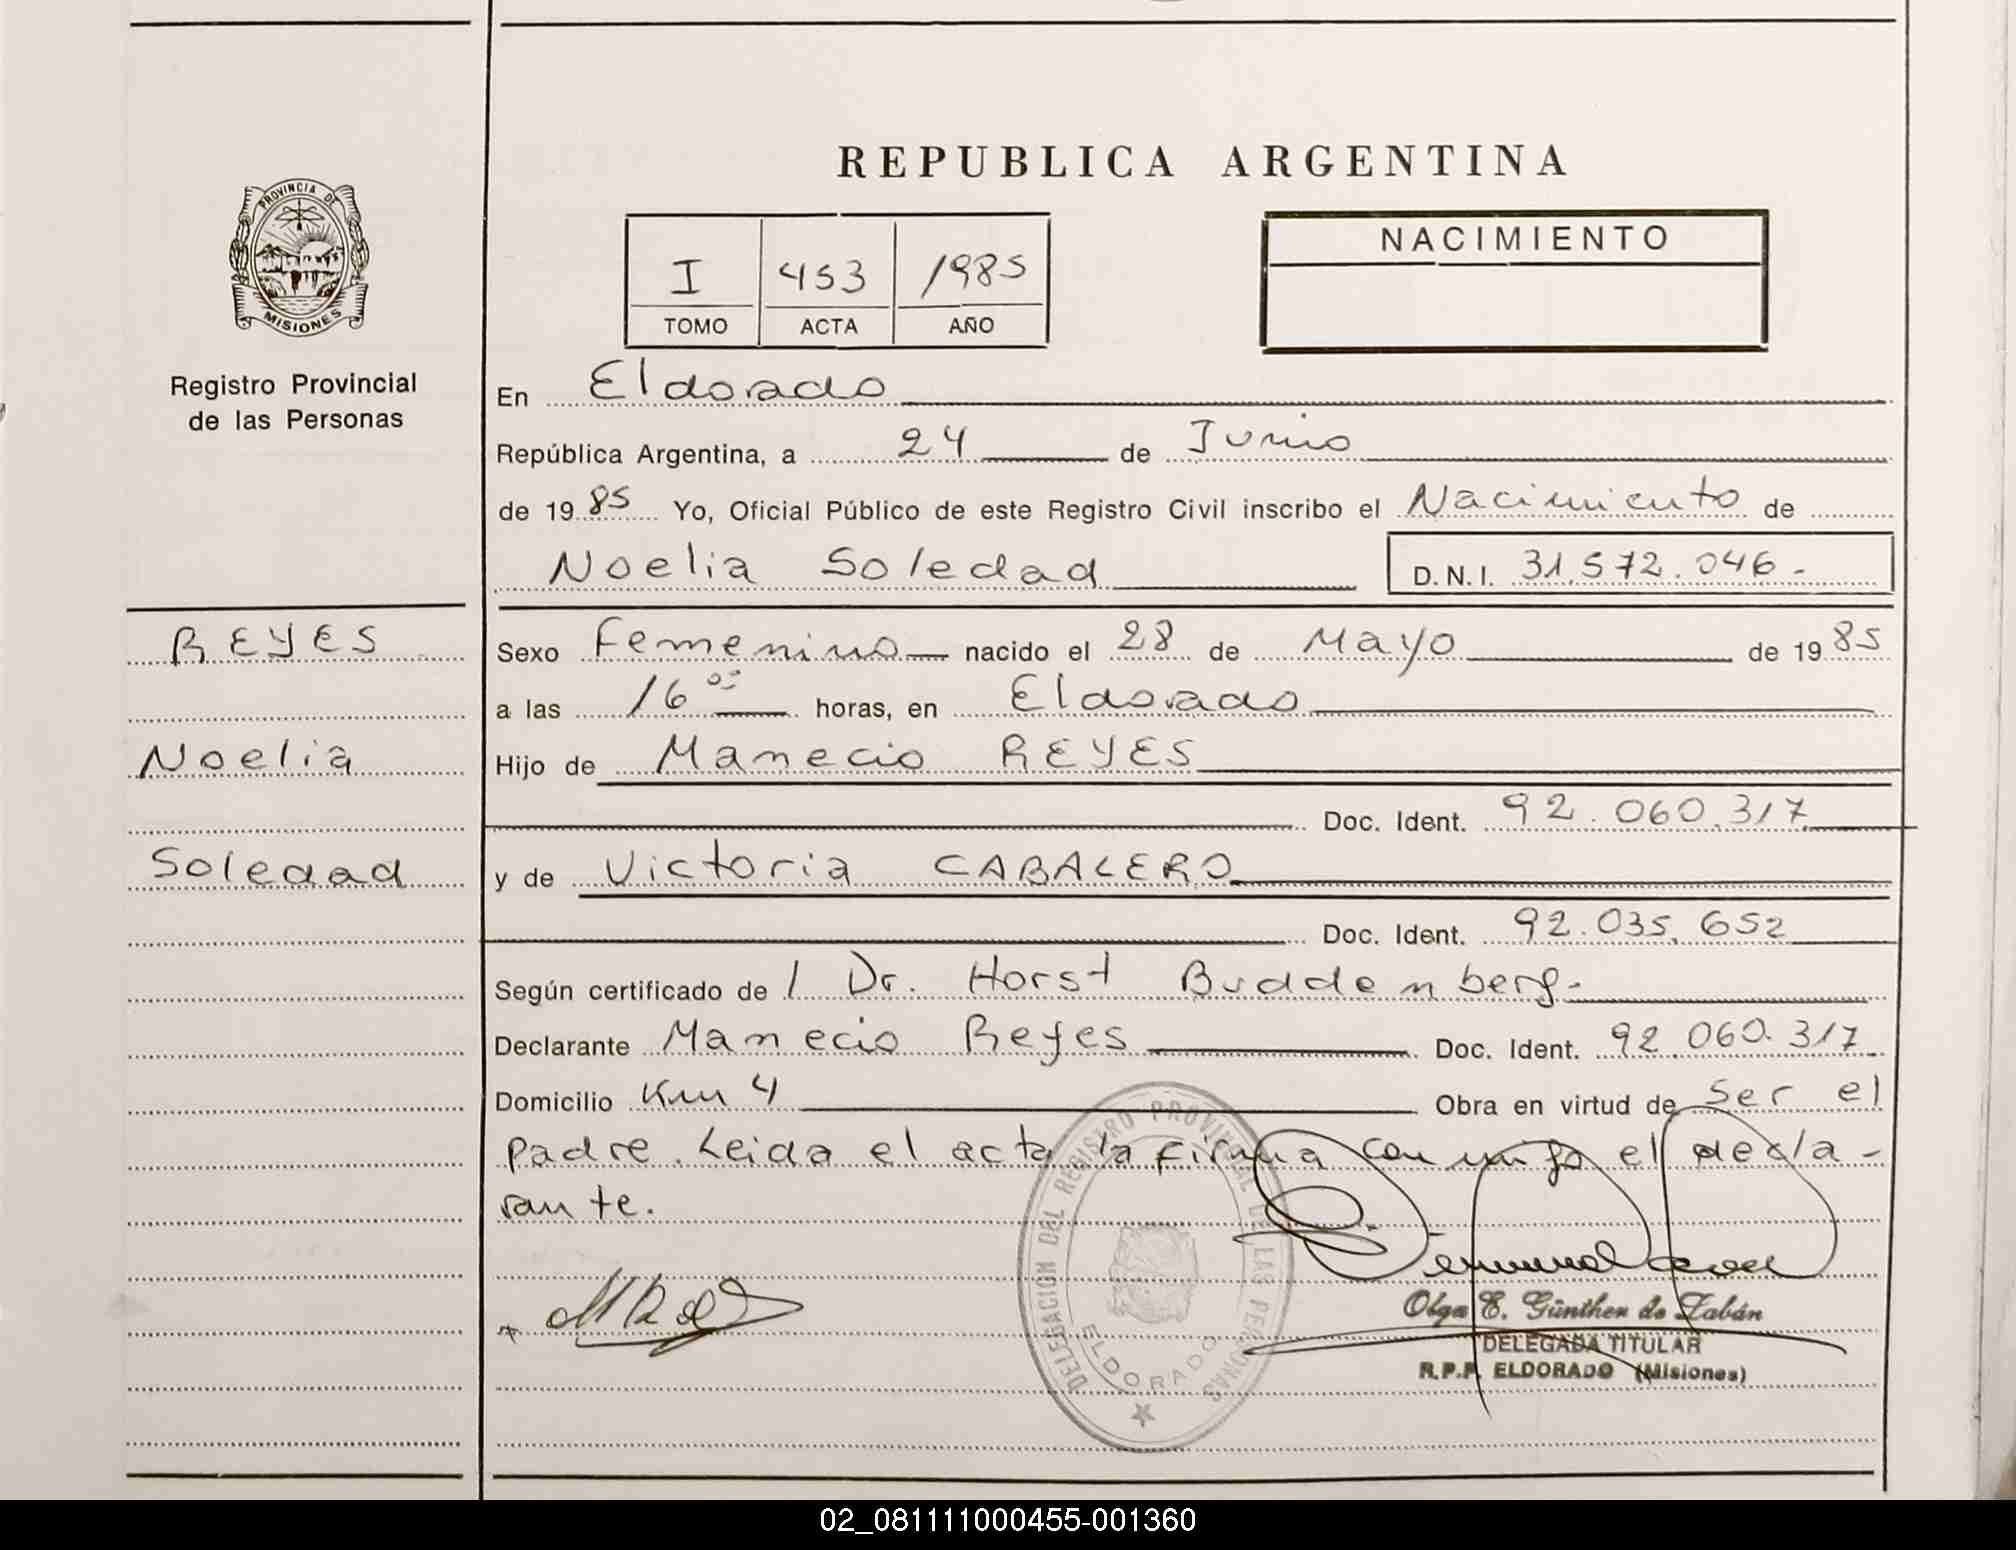 REPUBLICA ARGENTINA
PROVINCIA DE
MISIONES
Registro Provincial
de las Personas
I 453 1985
TOMO ACTA AÑO
NACIMIENTO
En Eldorado
República Argentina, a 24 de Junio
de 1985 Yo, Oficial Público de este Registro Civil inscribo el Nacimiento de
Noelia Soledad D.N.I. 31.572.046.-
REYES
Noelia
Soledad
Sexo Femenino nacido el 28 de Mayo de 1985
a las 16 horas, en Eldorado
Hijo de Manecio REYES
Doc. Ident. 92.060.317
y de Victoria CABALERO
Doc. Ident. 92.035.652
Según certificado de / Dr. Horst Buddenberg.-
Declarante Manecio Reyes Doc. Ident. 92.060.317
Domicilio Km 4 Obra en virtud de ser el
padre. Leida el acta la firma conmigo el decla-
rante.
DELEGACION DEL REGISTRO PROVINCIAL DE LAS PERSONAS
ELDORADO
Olga E. Günther de Zabán
DELEGADA TITULAR
R.P.P. ELDORADO (Misiones)
02_081111000455-001360